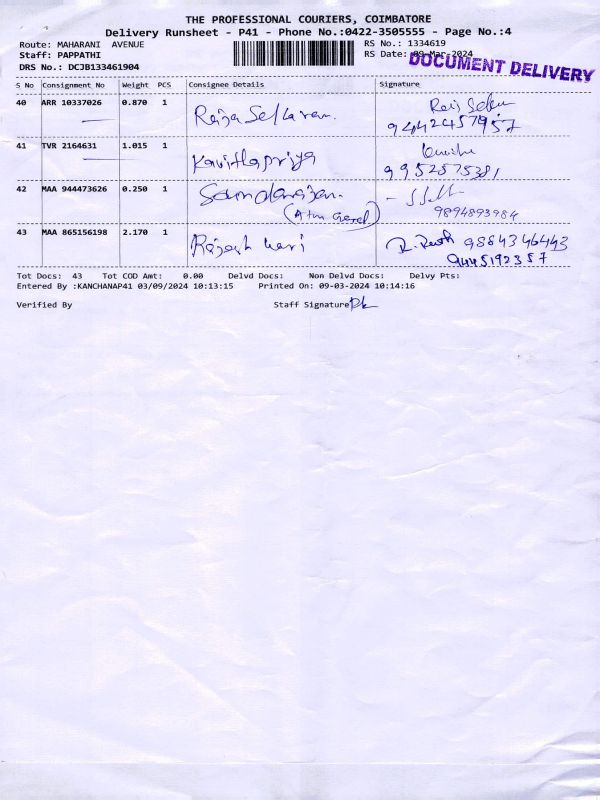 THE PROFESSIONAL COURIERS, COIMBATORE
Delivery Runsheet - P41 - Phone No.:0422-3505555 - Page No.:4
Route: MAHARANI AVENUE
RS No.: 1334619
Staff: PAPPATHI
RS Date: 09-Mar-2024
DOCUMENT DELIVERY
DRS No.: DCJB133461904
S No Consignment No Weight PCS Consignee Details Signature
40 ARR 10337026 0.870 1
41 TVR 2164631 1.015 1 Kavithapriya
9952575381
42 MAA 944473626 0.250 1
9894893984
43 MAA 865156198 2.170 1 Rajesh 9884346443
9445192357
Tot Docs: 43 Tot COD Amt: 0.00 Delvd Docs: Non Delvd Docs: Delvy Pts:
Entered By :KANCHANAP41 03/09/2024 10:13:15 Printed On: 09-03-2024 10:14:16
Verified By Staff Signature